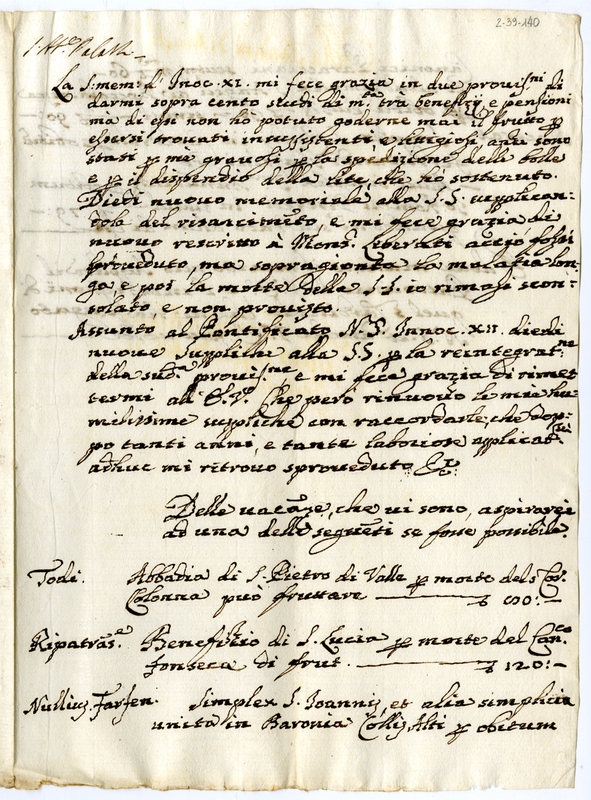 2-39-140
La S: mem: d'Innoc. XI. mi fece grazia in due provis.ni di
darmi sopra cento scudi di m.ta tra benefizij, e pensioni
ma di essi non hò potuto goderne mai il frutto p
essersi trovati insussistenti, e litigiosi, anzi sono
stati p me gravosi p la spedizione delle bolle
e p il dispendio della lite, che hò sostenuto.
Diedi nuovo memoriale alla S.S. supplican:
dola del risarcimẽto, e mi fece grazia di
nuovo rescritto à Mons.r Liberati acciò fossi
proveduto, ma sopragionta la malatia lon:
ga, e poi la morte della S.S. io rimasi scon:
solato e non provisto.
Assunto al Pontificato N.S. Innoc. XII. diedi
nuove suppliche alla S.S. p la reintegrat.ne
della sud.a provis.ne e mi fece grazia di rimet
termi all' Che però rinuovo le mie hu:
milissime suppliche con raccordarle, che dop:
po tanti anni, e tante laboriose applicat.ni
adhuc mi ritrovo sproveduto &c.
Delle vacãze, che vi sono, aspirarei
ad una delle seguẽti se fosse possibile.
Todi. Abbadia di S. Pietro di Valle p morte del
Colonna può fruttare
Ripatrãs.e Benefizio di S. Lucia p morte del Can.co
Fonseca di frut. 120:-
Nullius Farfen. Simplex S. Joannis, et alia simplicia
unita in Baronia Collis Alti p obitum